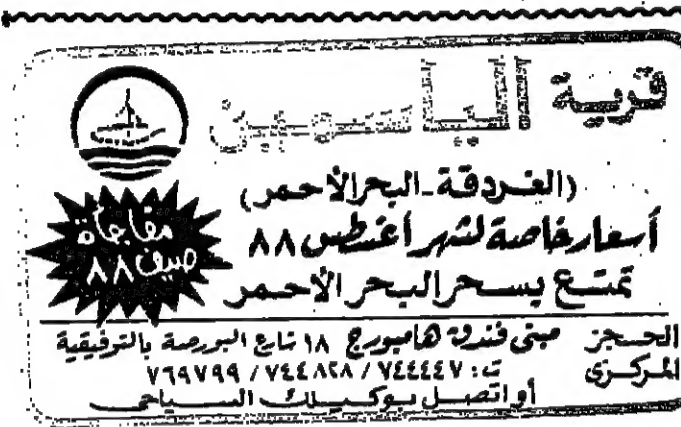 قرية الياسمين
(الغردقة - البحر الأحمر)
أسعار خاصة لشهر أغسطس ٨٨
تمتع بسحر البحر الأحمر
مفاجأة
صيف ٨٨
الحجز المركزى
مبنى فندق هامبورج ١٨ شارع البورصة بالتوفيقية
ت: ٧٤٤٤٤٧ / ٧٤٤٨٢٨ / ٧٦٩٧٩٩
أو اتصل بوكيلك السياحى